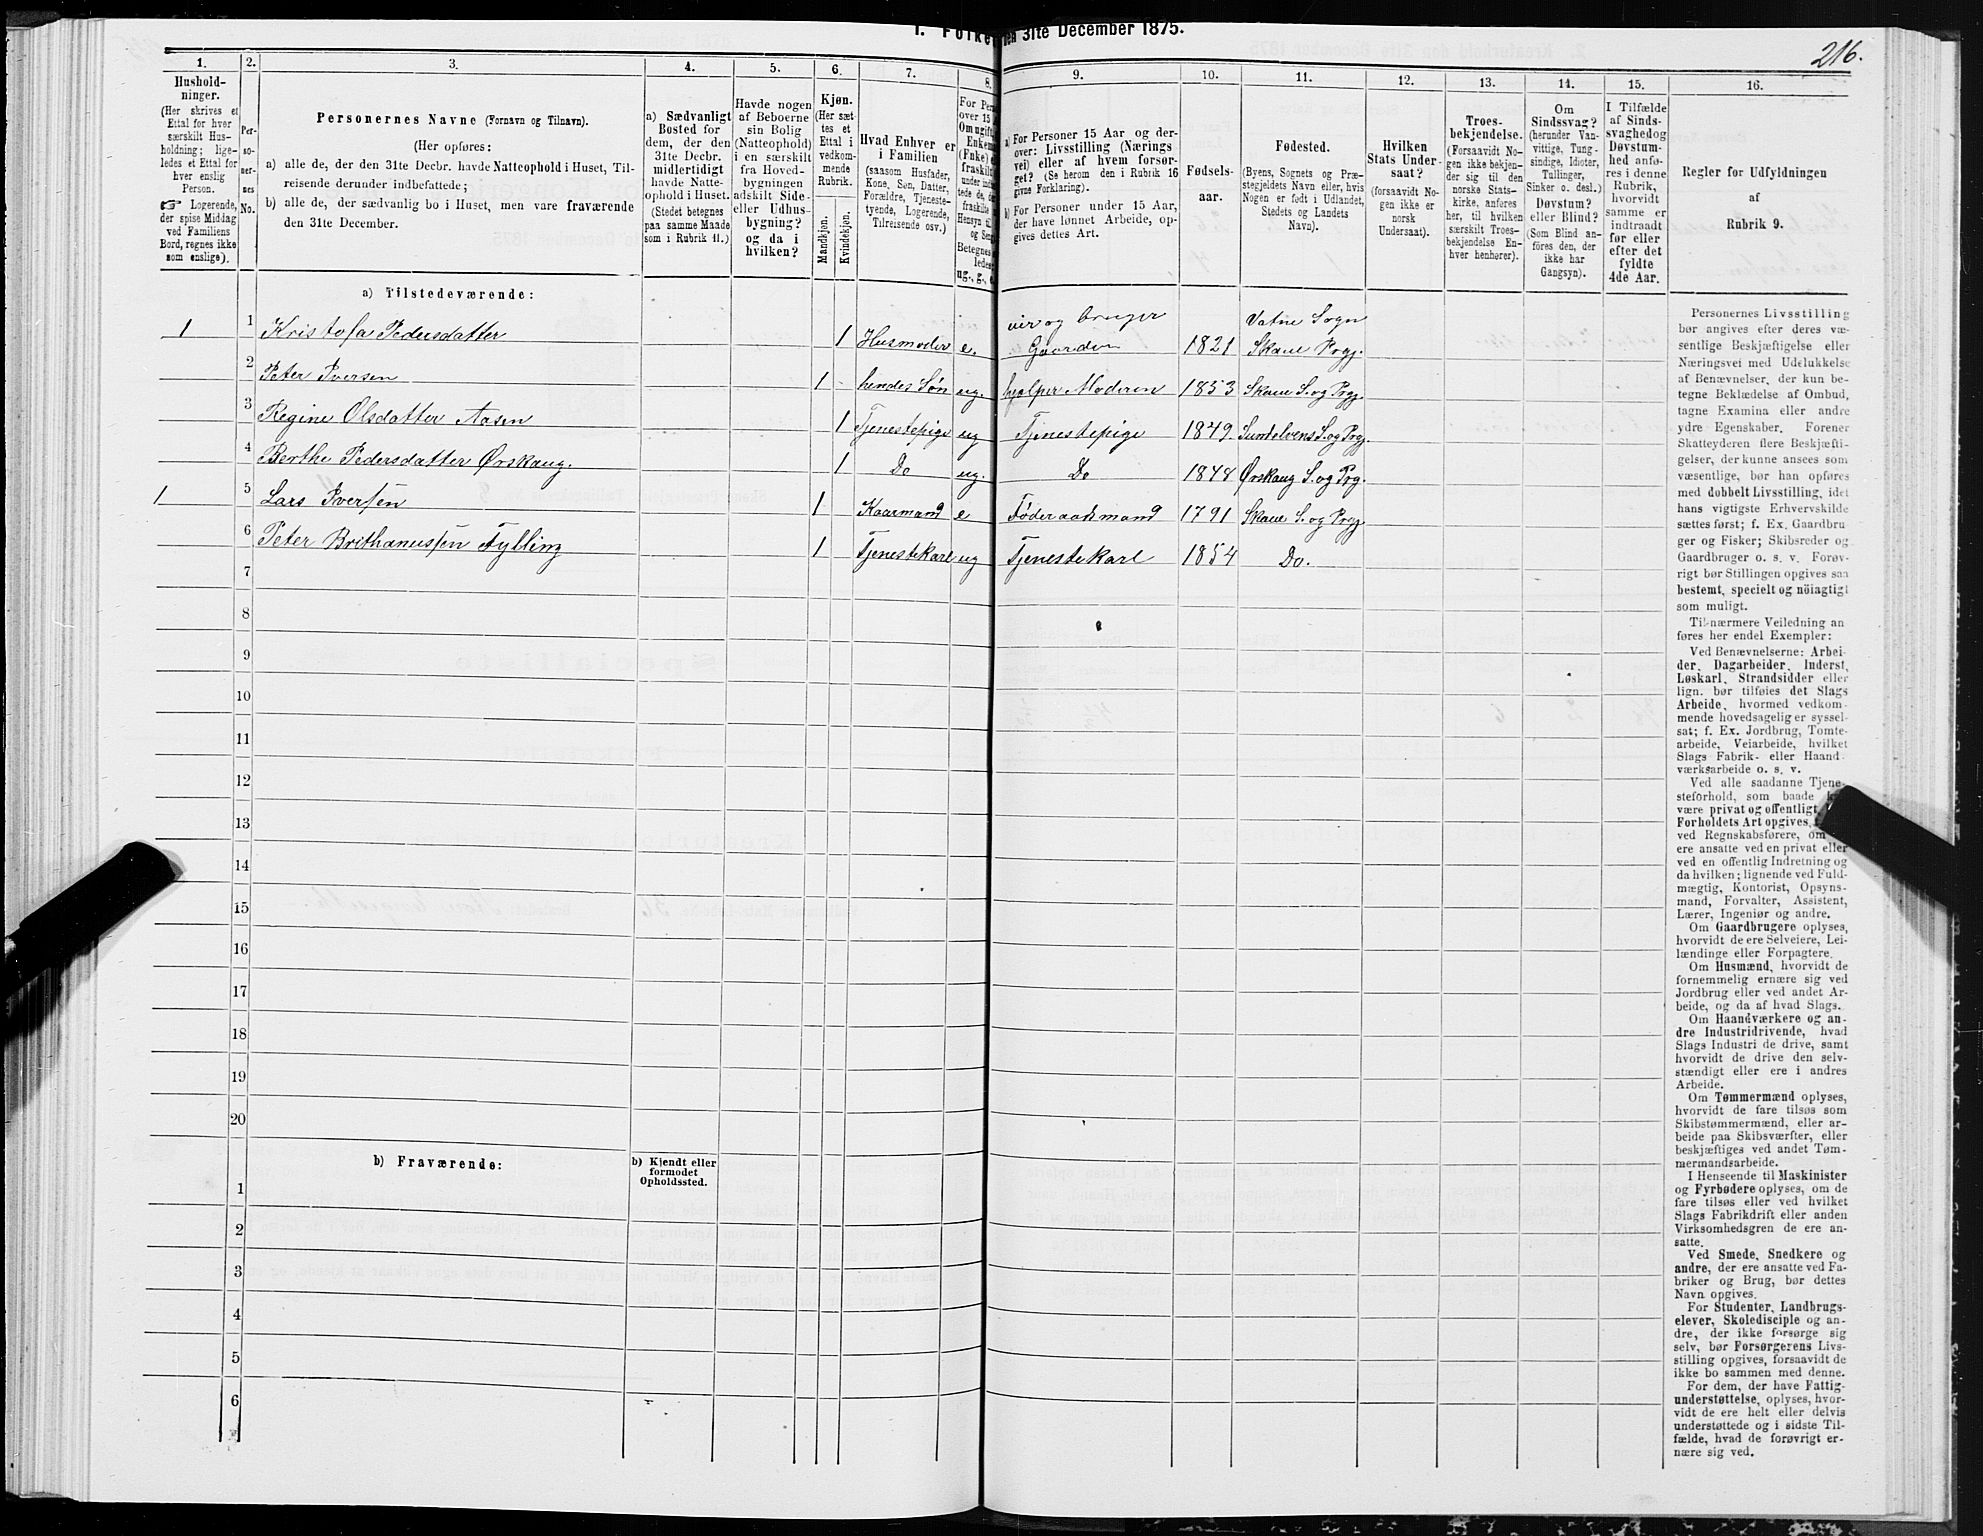 1. Folke
den 31te December 1875.
216.
1.
2.
3.
4.
5.
6.
7.
8.
9.
10.
11.
12.
13.
14.
15.
16.
Hushold-
ninger.
(Her skrives et
Ettal for hver
særskilt Hus-
holdning; lige-
ledes et Ettal for
hver enslig
Person.
☞ Logerende,
der spise Middag
ved Familiens
Bord, regnes ikke
som enslige).
Per-
so-
ner-
nes
No.
Personernes Navne (Fornavn og Tilnavn).
(Her opføres:
a) alle de, der den 31te Decbr. havde Natteophold i Huset, Til-
reisende derunder indbefattede;
b) alle de, der sædvanlig bo i Huset, men vare fraværende
den 31te December.
a) Sædvanligt
Bosted for
dem, der den
31te Decbr.
midlertidigt
havde Natte-
ophold i Huset.
(Stedet betegnes
paa samme Maade
som i Rubrik 11.)
Havde nogen
af Beboerne
sin Bolig
(Natteophold)
i en særskilt
fra Hoved-
bygningen
adskilt Side-
eller Udhus-
bygning?
og da i
hvilken?
Kjøn.
(Her sæt-
tes et
Ettal i
vedkom-
mende
Rubrik.
Mandkjøn.
Kvindekjøn.
Hvad Enhver er
i Familien
(saasom Husfader,
Kone, Søn, Datter,
Forældre, Tjeneste-
tyende, Logerende,
Tilreisende osv.)
For Pers
over 15
Om ugift
Enkem
(Fnke)
fraskilt
under indbe
tede de, de
fraskilte
Hensyn til
og Sen
Betegnes
ledes
ug., g., e.
a) For Personer 15 Aar og der-
over: Livsstilling (Nærings
vei) eller af hvem forsør-
get? (Se herom den i Rubrik 16
givne Forklaring).
b) For Personer under 15 Aar,
der have lønnet Arbeide, op-
gives dettes Art.
Fødsels-
aar.
Fødested.
(Byens, Sognets og Præ-
stegjeldets Navn eller, hvis
Nogen er født i Udlandet,
Stedets og Landets
Navn).
Hvilken
Stats Under-
saat?
(forsaavidt No-
gen ikke er
norsk
Undersaat).
Troes-
bekjendelse.
(Forsaavidt No-
gen ikke bekjen-
der sig til den
norske Stats-
kirke, anføres
her, til hvilken
særskilt Troes-
bekjendelse En-
hver henhører).
Om
Sindssvag?
(herunder Van-
vittige, Tung-
sindige, Idioter,
Tullinger,
Sinker o. desl.)
Døvstum?
eller Blind?
(Som Blind an-
føres den, der
ikke har
Gangsyn).
I Tilfælde
af Sinds-
svaghedog
Døvstum-
hed anfø-
res i denne
Rubrik,
hvorvidt
samme er
indtraadt
før eller
efter det
fyldte
4de Aar.
Regler for Udfyldningen
af
Rubrik 9.
a) Tilstedeværende:
1 1 Kristofa Pedersdatter 1 Husmoder e. eier og bruger Gaarden 1821 Vatne Sogn Skaue Prgj.
2 Peter Iversen 1 hendes Søn ug. hjælper Moderen 1853 Skaue S. og Prgj.
3 Regine Olsdatter Aasen 1 Tjenestepige ug Tjenestepige 1849. Sundelvens S. og Prgj.
4 Berthe Pedersdatter Ørskaug. 1 Do ug. Do 1848 Ørskaug S. og Prg.
1 5 Lars Iversen 1 Kaarmand e Føderaadsmand 1791 Skaue S. og Prgj
6 Peter Brithanussen Fylling 1 Tjenestekarl ug Tjenestekarl 1854 Do.
7
8
9
10
11
12
13
14
15
16
17
18
19
20
b) Fraværende:
b) Kjendt eller
formodet
Opholdssted.
1
2
3
4
5
6
Personernes Livsstilling
bør angives efter deres væ-
sentlige Beskjæftigelse eller
Næringsvei med Udelukkelse
af Benævnelser, der kun be-
tegne Beklædelse af Ombud,
tagne Examina eller andre
ydre Egenskaber. Forener
Skatteyderen flere Beskjæfti-
gelser, der kunne ansees som
væsentlige, bør han opføres
med dobbelt Livsstilling, idet
hans vigtigste Erhvervskilde
sættes først; f. Ex. Gaardbru-
ger og Fisker; Skibsreder og
Gaardbruger o. s. v. Forøv-
rigt bør Stillingen opgives saa
bestemt, specielt og nöiagtigt
som muligt.
Til nærmere Veiledning an
føres her endel Exempler:
Ved Benævnelserne: Arbei-
der, Dagarbeider, Inderst,
Løskarl, Strandsidder eller
lign. bør tilføies det Slags
Arbeide, hvormed vedkom-
mende hovedsagelig er syssel-
sat; f. Ex. Jordbrug, Tomte-
arbeide, Veiarbeide, hvilket
Slags Fabrik- eller Haand
værksarbeide o. s. v.
Ved alle saadanne Tjene-
steforhold, som baade
være privat og offentligt
Forholdets Art opgives,
ved Regnskabsførere, om
ere ansatte ved en privat eller
ved en offentlig Indretning og
da hvilken; lignende ved Fuld-
mægtig, Kontorist, Opsyns-
mand, Forvalter, Assistent,
Lærer, Ingeniør og andre.
Om Gaardbrugere oplyses,
hvorvidt de ere Selveiere, Lei-
lændinge eller Forpagtere.
Om Husmænd, hvorvidt de
fornemmelig ernære sig ved
Jordbrug eller ved andet Ar-
beide, og da af hvad Slags.
Om Haandværkere og an-
dre Industridrivende, hvad
Slags Industri de drive, samt
hvorvidt de drive den selv-
stændigt eller ere i andres
Arbeide.
Om Tømmermænd oplyses,
hvorvidt de fare tilsøs som
Skibstømmermænd, eller ar-
beide paa Skibsværfter, eller
beskjæftiges ved andet Tøm-
mermandsarbeide.
I Henseende til Maskinister
og Fyrbødere oplyses, om de
fare tilsøs eller ved hvilket
Slags Fabrikdrift eller anden
Virksomhedsgren de ere an-
satte.
Ved Smede, Snedkere og
andre, der ere ansatte ved Fa-
briker og Brug, bør dettes
Navn opgives.
For Studenter, Landbrugs-
elever, Skoledisciple og an-
dre, der ikke forsørge sig
selv, bør Forsørgerens Livs-
stilling opgives, forsaavidt de
ikke bo sammen med denne.
For dem, der have Fattig-
understøttelse, oplyses, hvor-
vidt de ere helt eller delvis
understøttede og i sidste Til-
fælde, hvad de forøvrigt er-
nære sig ved.